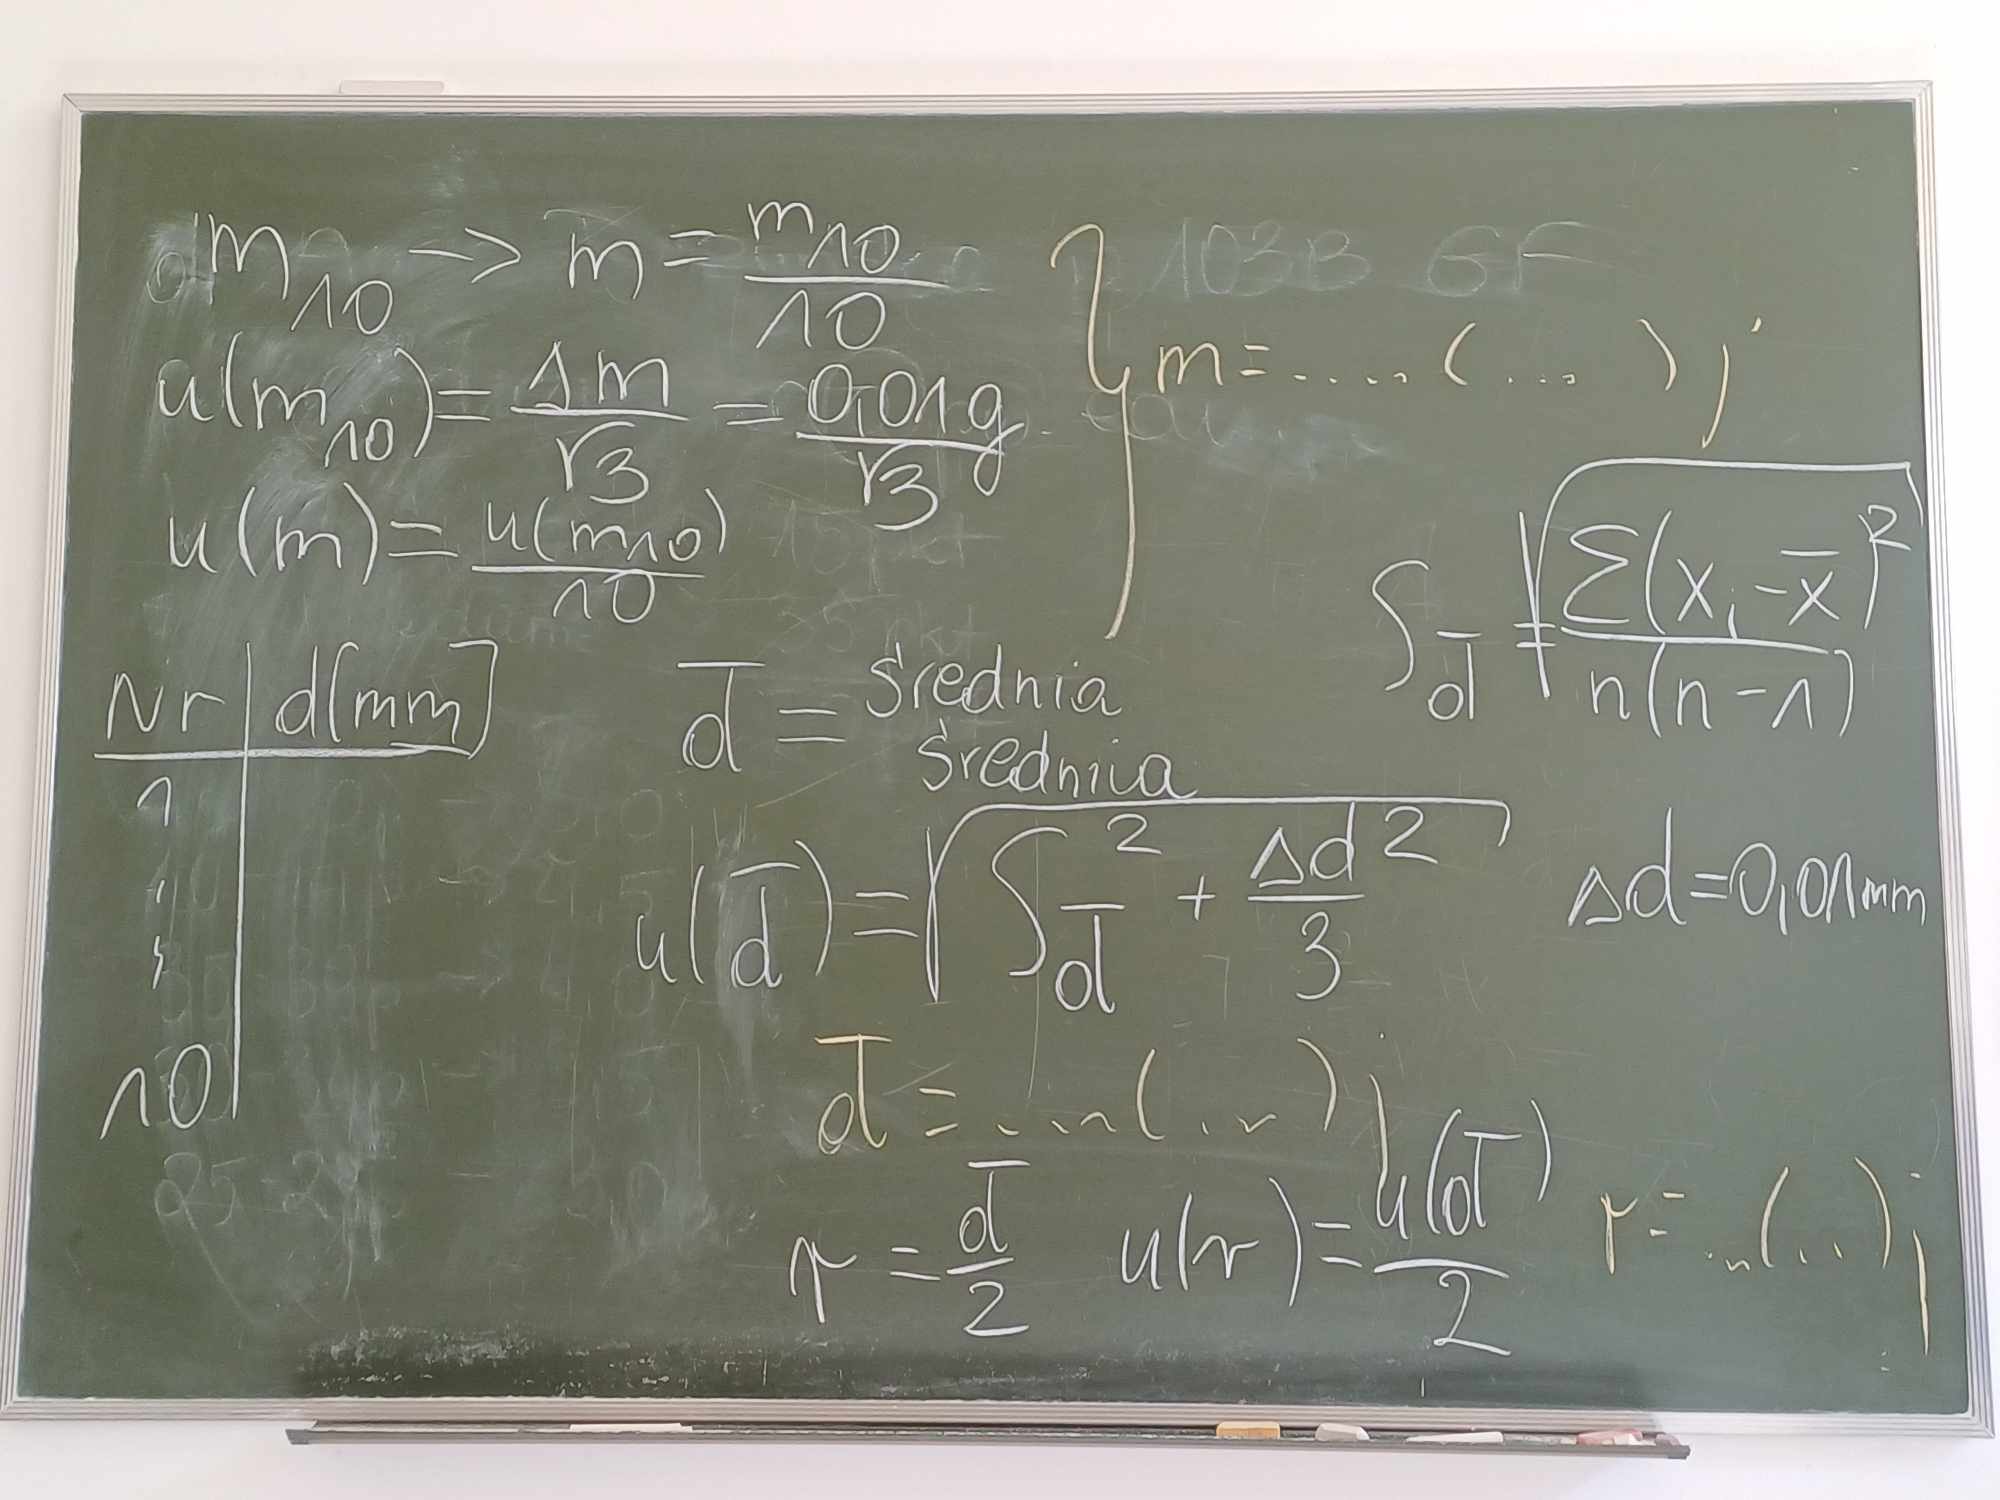 m₁₀ → m = m₁₀/10
u(m₁₀) = Δm/√3 = 0,01g/√3
u(m) = u(m₁₀)/10
} m = .... (...) j
S_d̄ = √(Σ(xᵢ - x̄)²/n(n-1))
Nr | d[mm]
1
⋮
10
d̄ = średnia
średnica
u(d̄) = √(S_d̄² + Δd²/3)
Δd = 0,01mm
d̄ = .... (...) j
r = d̄/2 u(r) = u(d̄)/2 r = ...(...) j
103B GF